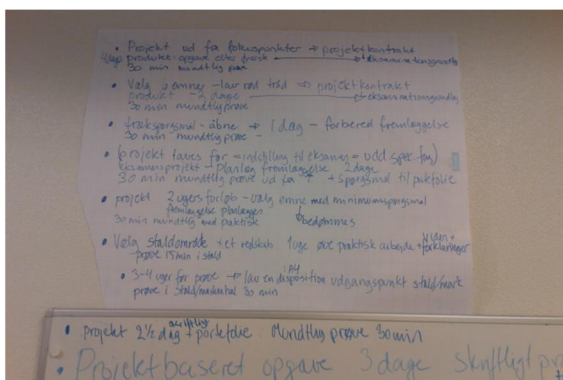 • Projekt ud fra fokuspunkter → projektkontrakt
4 dage produktet-opgave efter
30 min mundtlig prøve
• Vælg emner - lav rød tråd ⇒ projektkontrakt
produkt - 3 dage
30 min mundtlig prøve
• trækspørgsmål - åbne → 1 dag - forbered fremlæggelse
30 min mundtlig prøve -
• (projekt laves før = indstilling til eksamen = udd spec fag)
eksamensprojekt - planlæg fremlæggelse 2 dage
30 min mundtlig prøve ud fra ↑ + spørgsmål til portfolie
• projekt 2 ugers forløb - vælg emne med minimumsspørgsmål
fremlæggelse planlægges
30 min mundtlig med praktisk bedømmes
• Vælg staldområde + et redskab 1 uge øve praktisk arbejde + viden + forklaringer
prøve 15 min i stald
• 3-4 uger før prøve → lav en 1 A4 disposition udgangspunkt stald/mark
prøve i stald/maskinhal 30 min
• projekt 2½ dag skriftligt + portefolie Mundtlig prøve 30 min
• Projektbaseret opgave 3 dage skriftligt